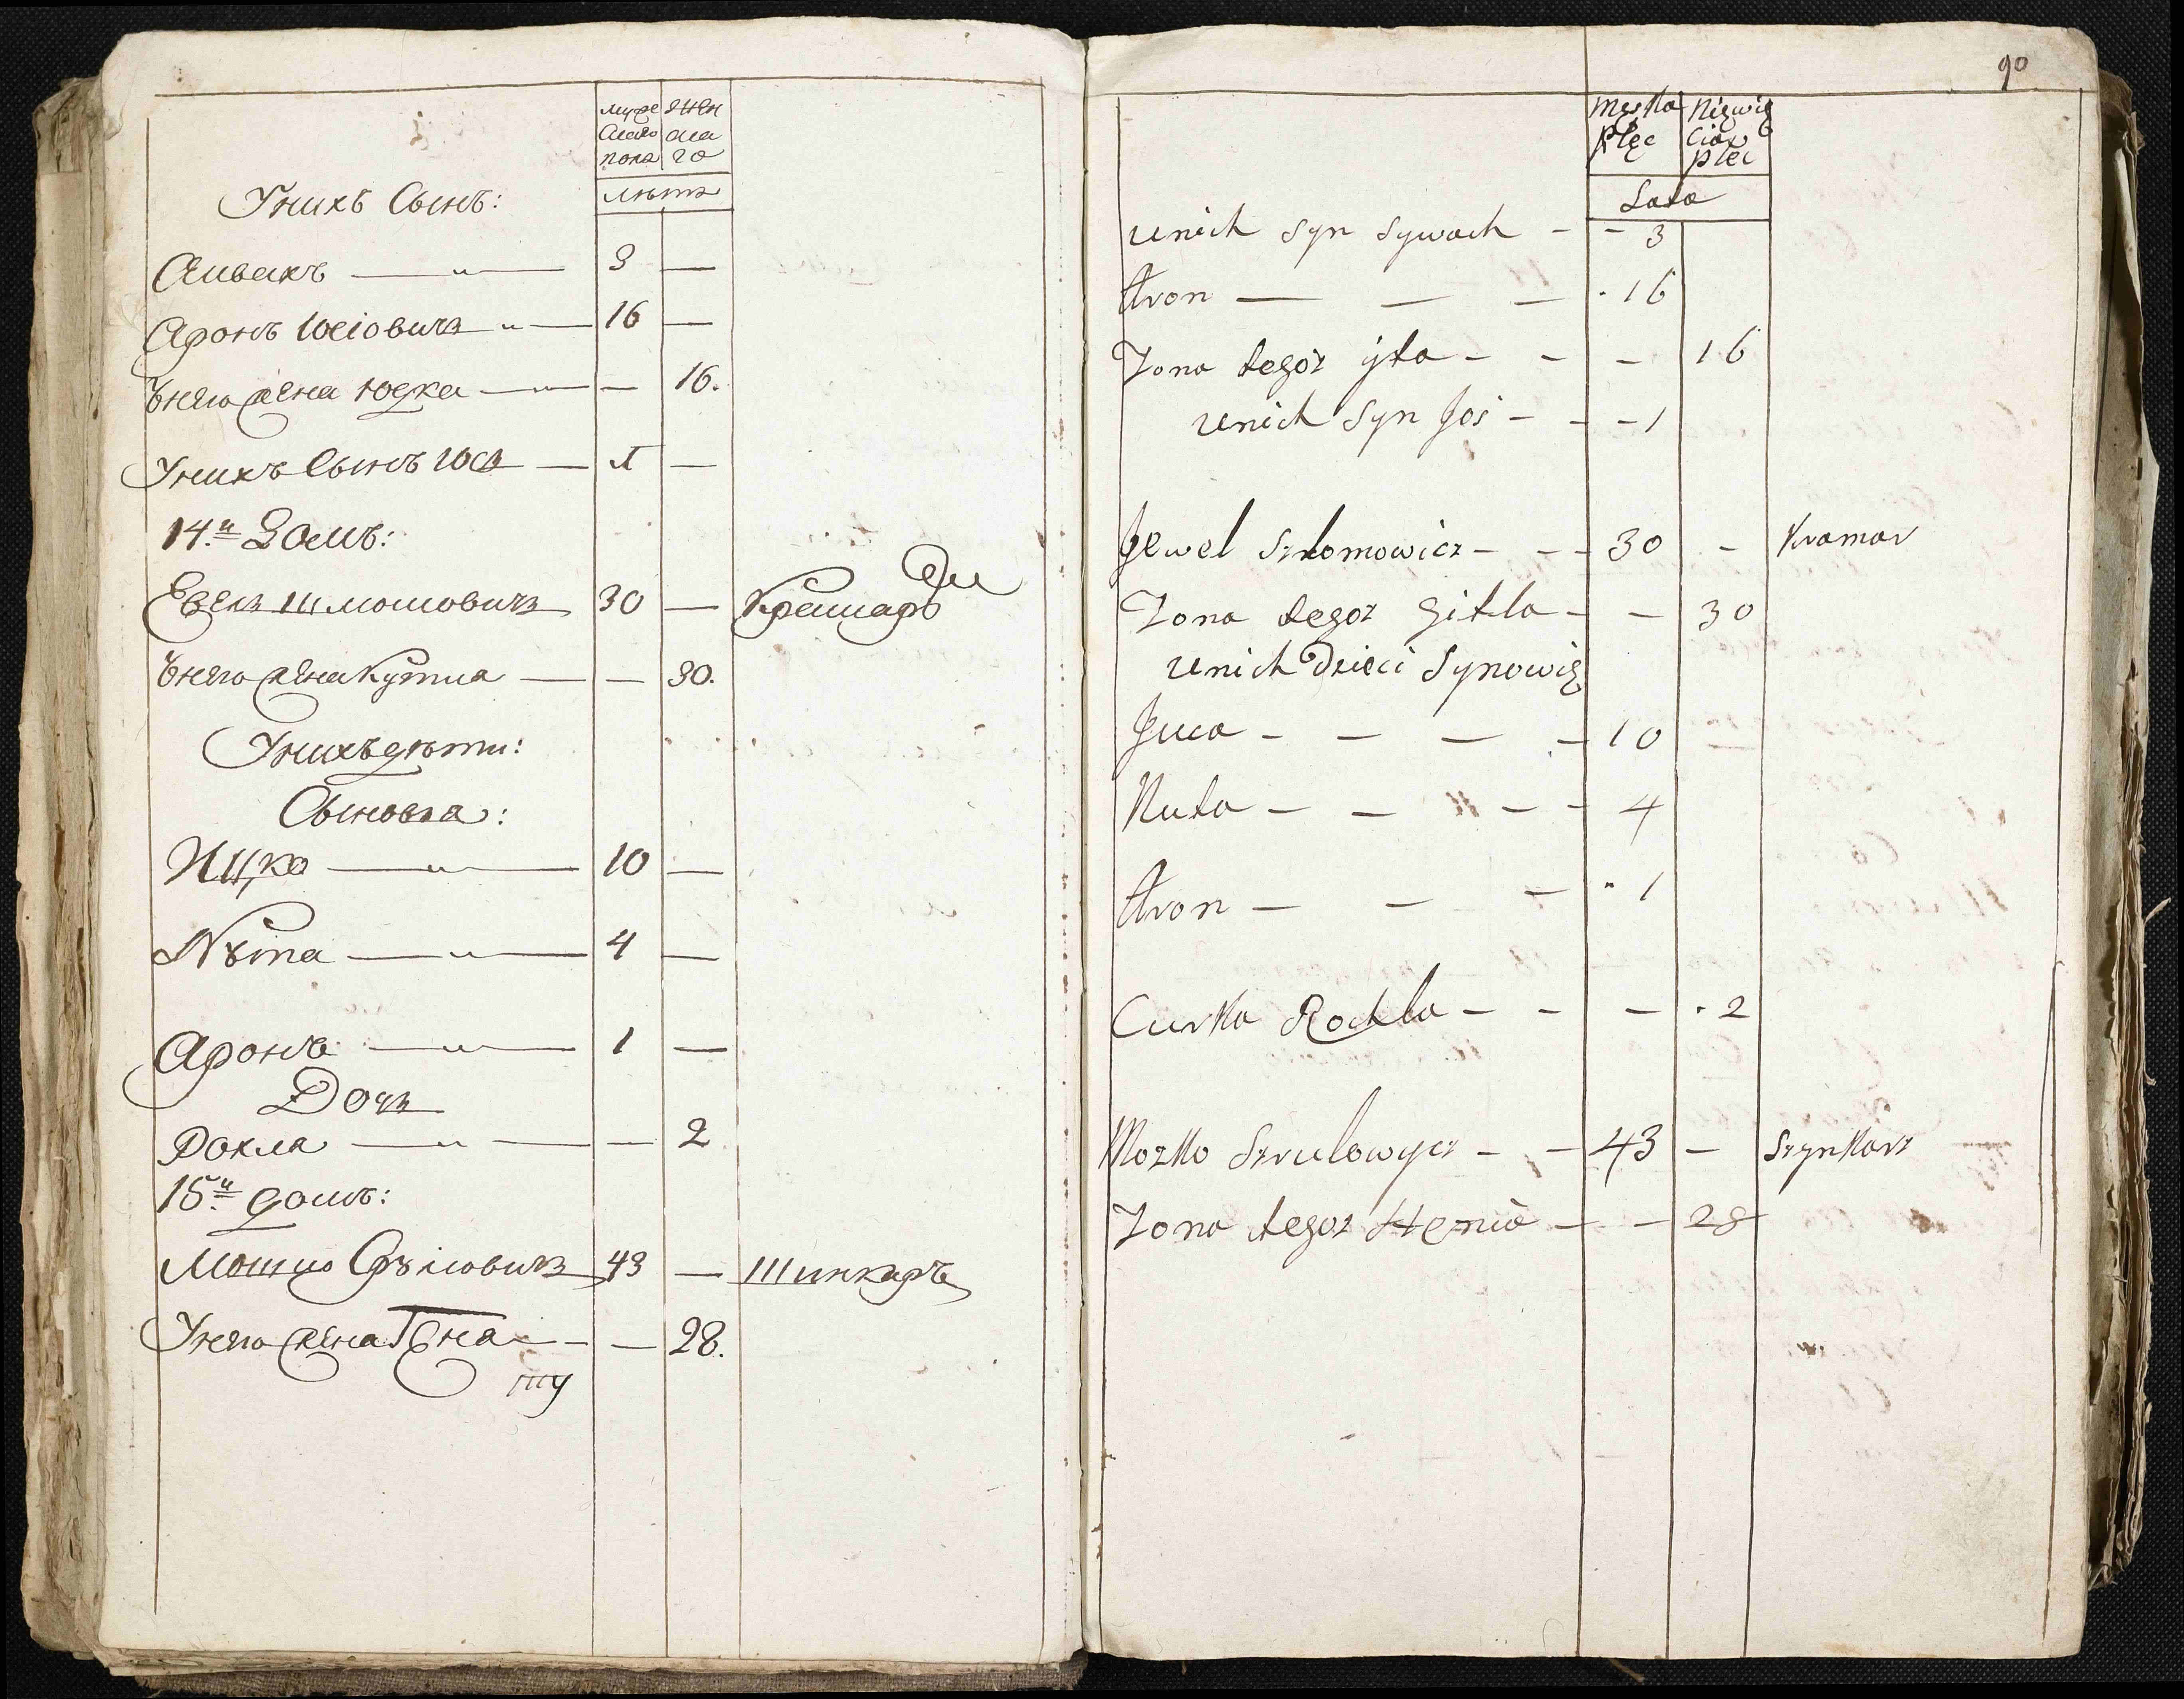 муже женс
скаго ска
пола го
лѣтъ
Унихъ Сынъ:
Сивакъ — " — 3 —
Аронъ Юсіовичъ " — 16 —
Ѣнего жена Юдка — " — — 16.
Унихъ Сынъ Юсь — 1 —
14.й Домъ:
Евель Шмомовичъ 30 — Крамаръ
Ѣнего жена Кутла — — 30.
Унихъ дѣти:
Сыновья:
Ицко — " — 10 —
Нъта — " — 4 —
Аронъ — " — 1 —
Дочь
Рохла — " — — 2
15.й домъ:
Мошко Сруловичъ 43 — Шинкаръ
Унего жена Гена — — 28.
90
Męska Niewie
Płęc ciax
płec
Lata
unich syn Sywach - - 3
Aron — — — 16
Zona tegoż yta - - - 16
unich Syn Joś - - - 1
Jewel Szlomowicz - - - 30 - Kramar
Zona tegoz Gitla - - 30
unich Dzieci Synowię
Juca - — — — 10
Nuta - - - - 4
Aron — - — 1
Curka Rochla - - - 2
Mozko Szrulowycz - - 43 - Szynkarz
Zona tegoz Henia — - 28